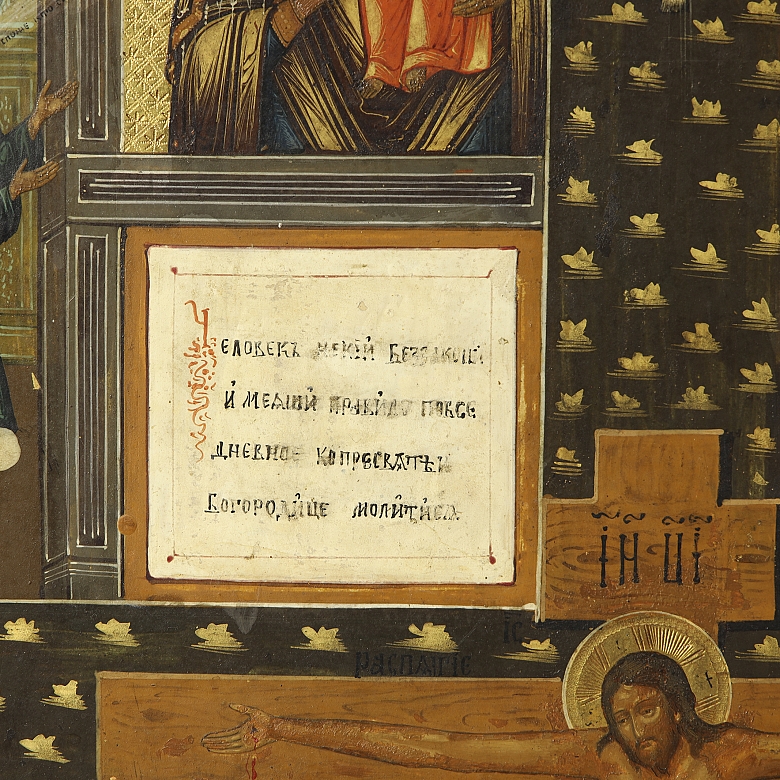 Человекъ некій беззакони
имеяший правило повсе
дневное копресвятѣи
Богородице молитися
ІН ЦІ
ІС
распятіе